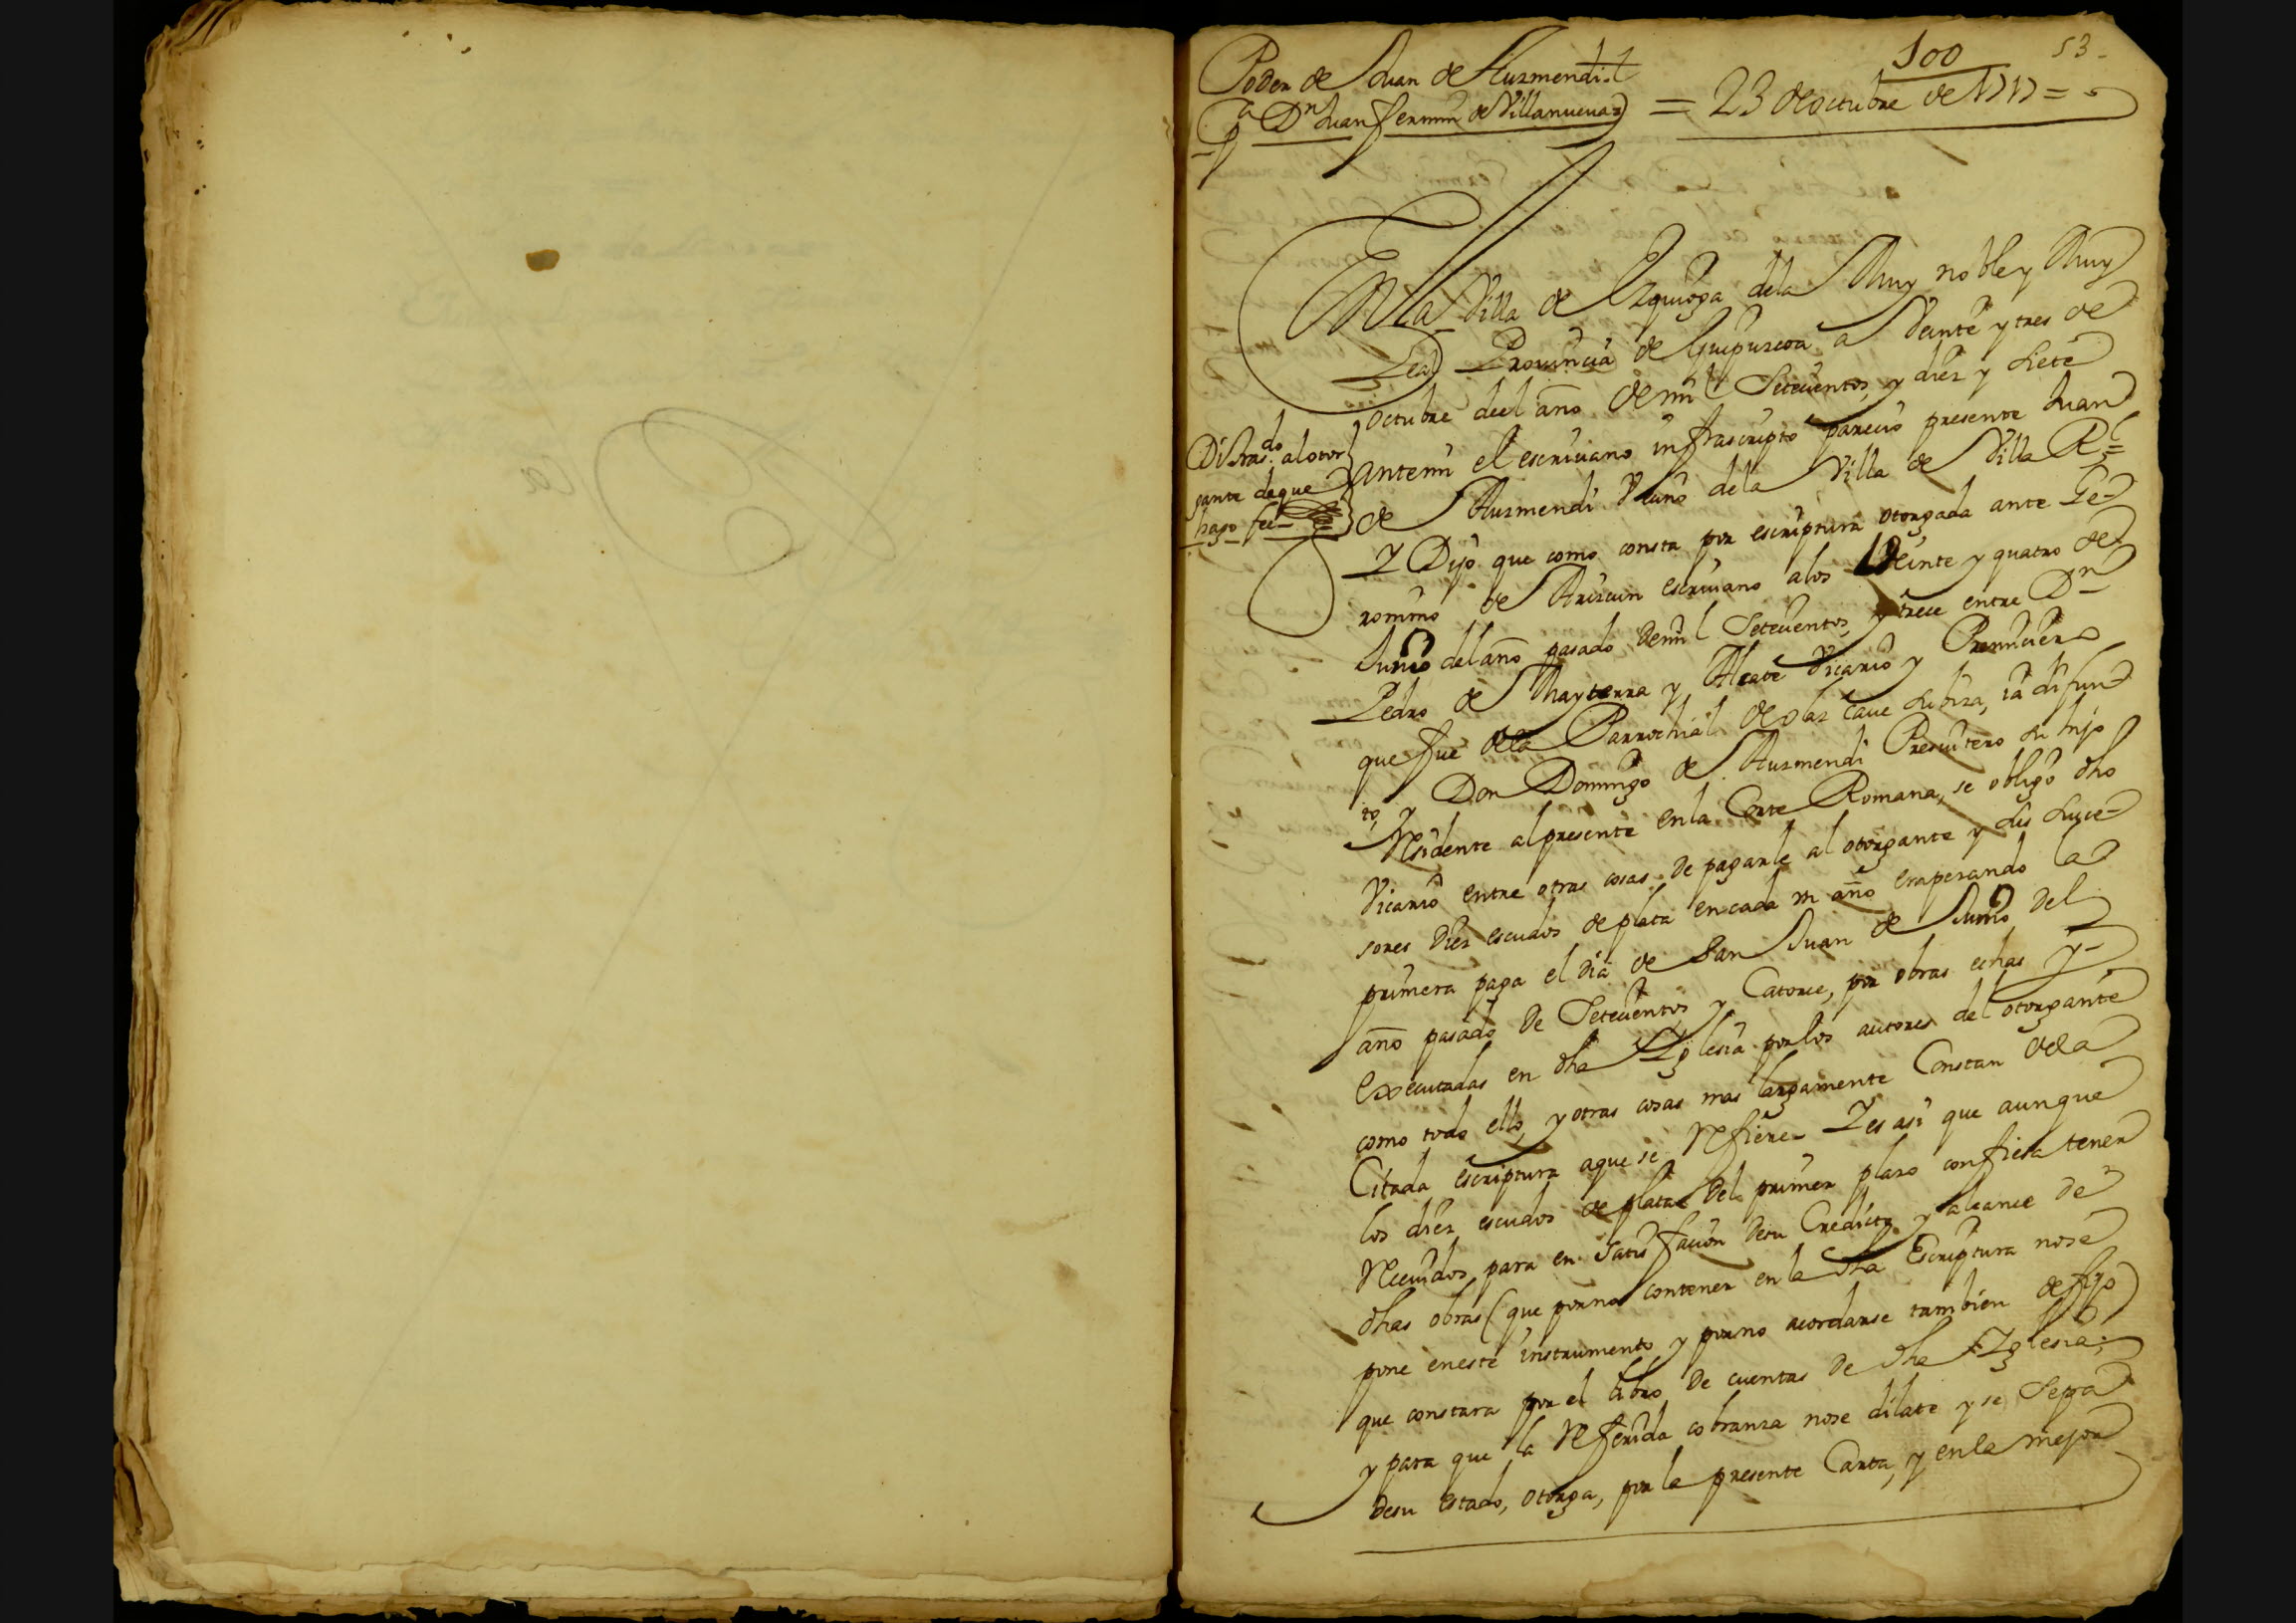 100
53
Poder de Juan de Ausmendi
a Dn Juan fermin de Villanueua
= 23 de octubre de 1717 =
En la Villa de Ezquioga dela Muy noble y Muy
Leal Prouincia de Guipuzcoa a Veinte y tres de
octubre deel año de mil Setecientos, y diez y Siete
antemi el escriuano infrascripto parecio presente Juan
de Ausmendi Vecino dela Villa de Villa Rl =
Di Tras.do al otor
gante de que
hago fee
Y Dijo que como consta por escriptura otorgada ante Ge-
ronimo de Arizcun escriuano a los Veinte y quatro de
Junio del año pasado de mil Setecientos, y trece entre Dn
Pedro de Mayterra y Alcate Vicario y Primiciero
que fue dela Parrochial de olaz caue Subiza, ia difun
to, y Don Domingo de Ausmendi Presuitero su hijo
Residente al presente en la Corte Romana, se obligo dho
Vicario entre otras cosas de pagarle al otorgante y sus suce-
sores diez escudos de plata en cada vn año empezando la
primera paga el dia de San Juan de Junio del
año pasado de Setecientos y Catorce, por obras echas y
executadas en dha Yglesia por los autores del otorgante
como todo ello, y otras cosas mas largamente Constan dela
Citada escriptura aque se Refiere- Y es asi que aunque
los diez escudos de plata del primer plazo confiesa tener
Receuidos para en satisfacion de su Credicto y alcance de
dhas obras (que por no contener en la dha Escriptura no se
pone en este instrumento y por no acordarse tambien de fijo)
que constara por el libro de cuentas de dha Yglesia;
y para que la Referida cobranza no se dilate y se sepa
de su estado, otorga, por la presente Carta, y en la mejor